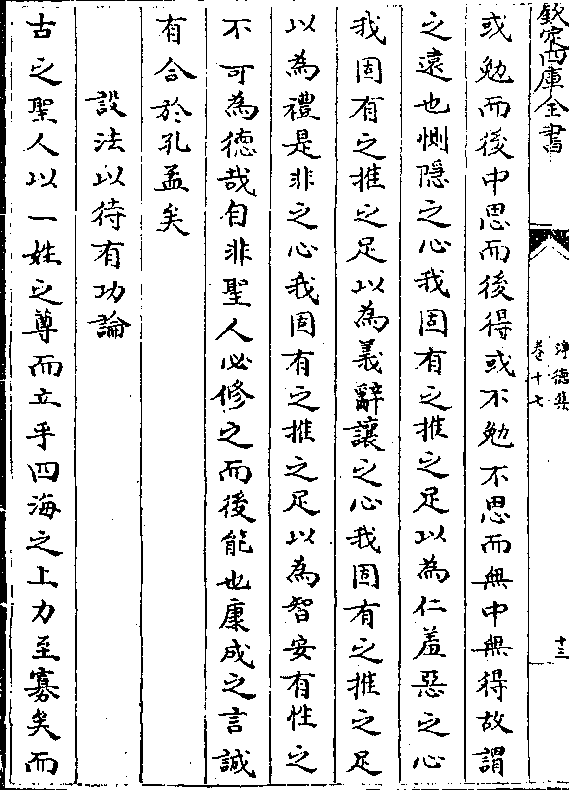 欽定四庫全書
淨德集
卷十七
十三
或勉而後中思而後得或不勉不思而無中無得故謂
之遠也惻隱之心我固有之推之足以為仁羞惡之心
我固有之推之足以為義辭讓之心我固有之推之足
以為禮是非之心我固有之推之足以為智安有性之
不可為德哉自非聖人必修之而後能也康成之言誠
有合於孔孟矣
設法以待有功論
古之聖人以一姓之尊而立乎四海之上力至寡矣而